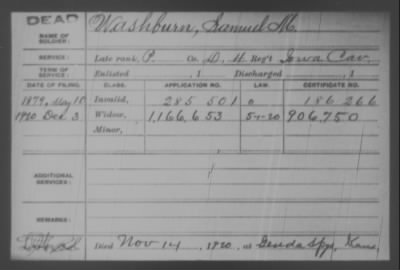 DEAD
NAME OF SOLDIER: Washburn, Samuel M.
SERVICE: Late rank, P. Co. D, 4, Reg't Iowa Cav.
TERM OF SERVICE: Enlisted , 1 Discharged , 1
DATE OF FILING. CLASS. APPLICATION NO. LAW. CERTIFICATE NO.
1879, May 10 Invalid, 285 501 0 186 266
1920 Dec 3 Widow, 1,166,653 5-1-20 906,750
Minor,
ADDITIONAL SERVICES:
REMARKS:
Died Nov 14, 1920, at Geuda Spgs, Kans,